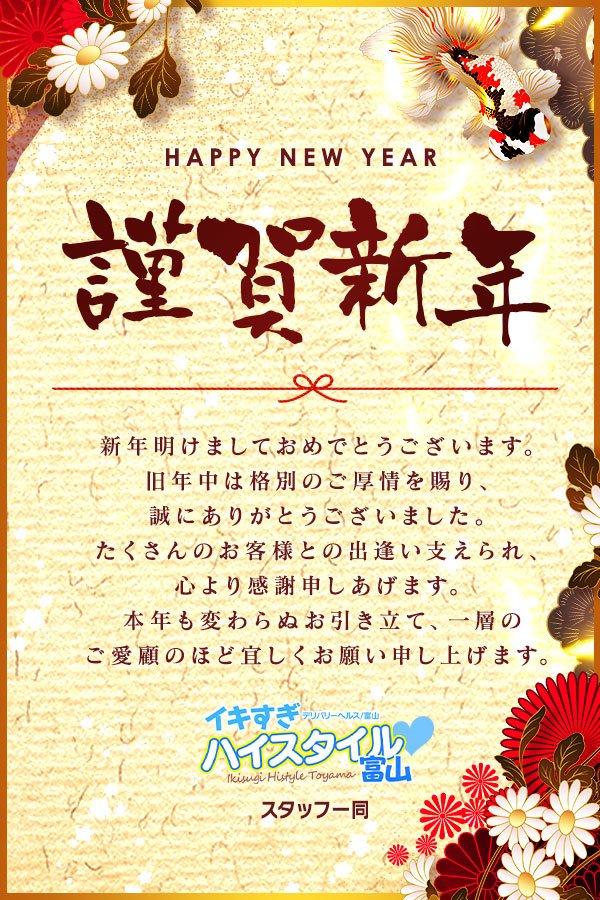 HAPPY NEW YEAR
謹賀新年
新年明けましておめでとうございます。
旧年中は格別のご厚情を賜り、
誠にありがとうございました。
たくさんのお客様との出逢い支えられ、
心より感謝申しあげます。
本年も変わらぬお引き立て、一層の
ご愛顧のほど宜しくお願い申し上げます。
イキすぎ デリバリーヘルス/富山
ハイスタイル
Ikisugi Histyle Toyama 富山
スタッフ一同